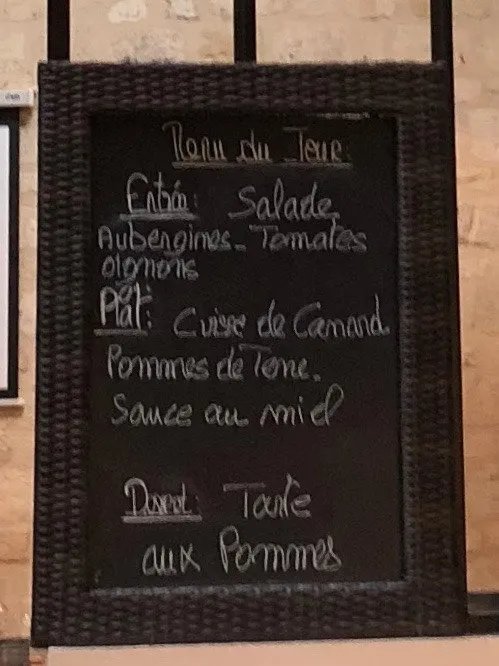 Menu du Jour
Entrée: Salade
Aubergines - Tomates
oignons
Plat: Cuisse de Canard
Pommes de Terre.
Sauce au miel
Dessert: Tarte
aux Pommes